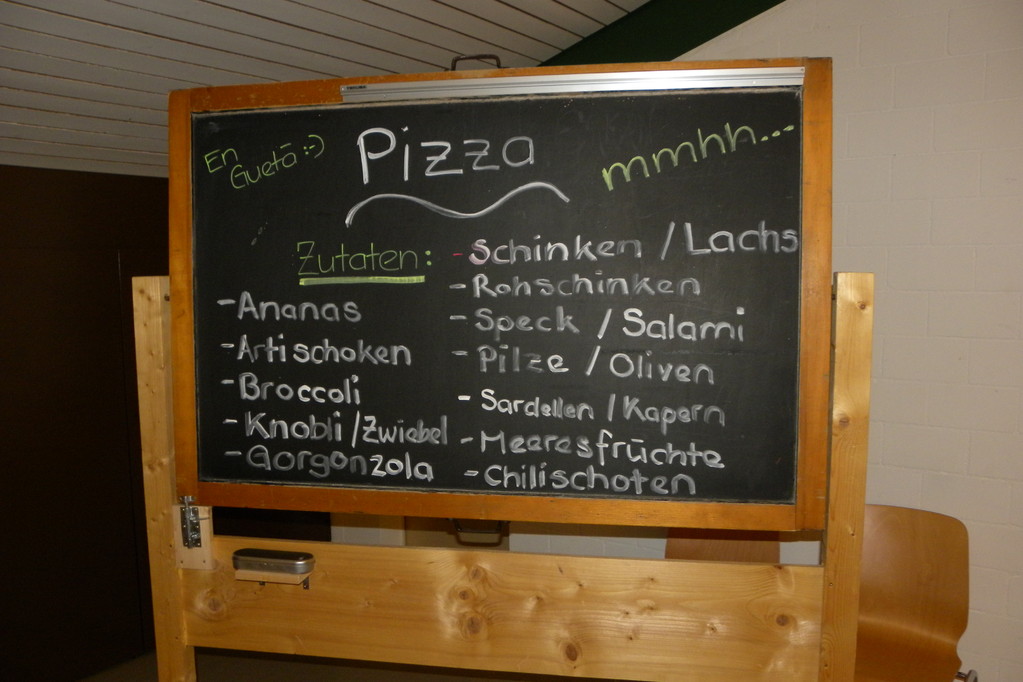 En
Guetā :-)
Pizza
mmhh...
Zutaten:
- Ananas
- Artischoken
- Broccoli
- Knobli / Zwiebel
- Gorgonzola
- Schinken / Lachs
- Rohschinken
- Speck / Salami
- Pilze / Oliven
- Sardellen / Kapern
- Meeresfrüchte
- Chilischoten